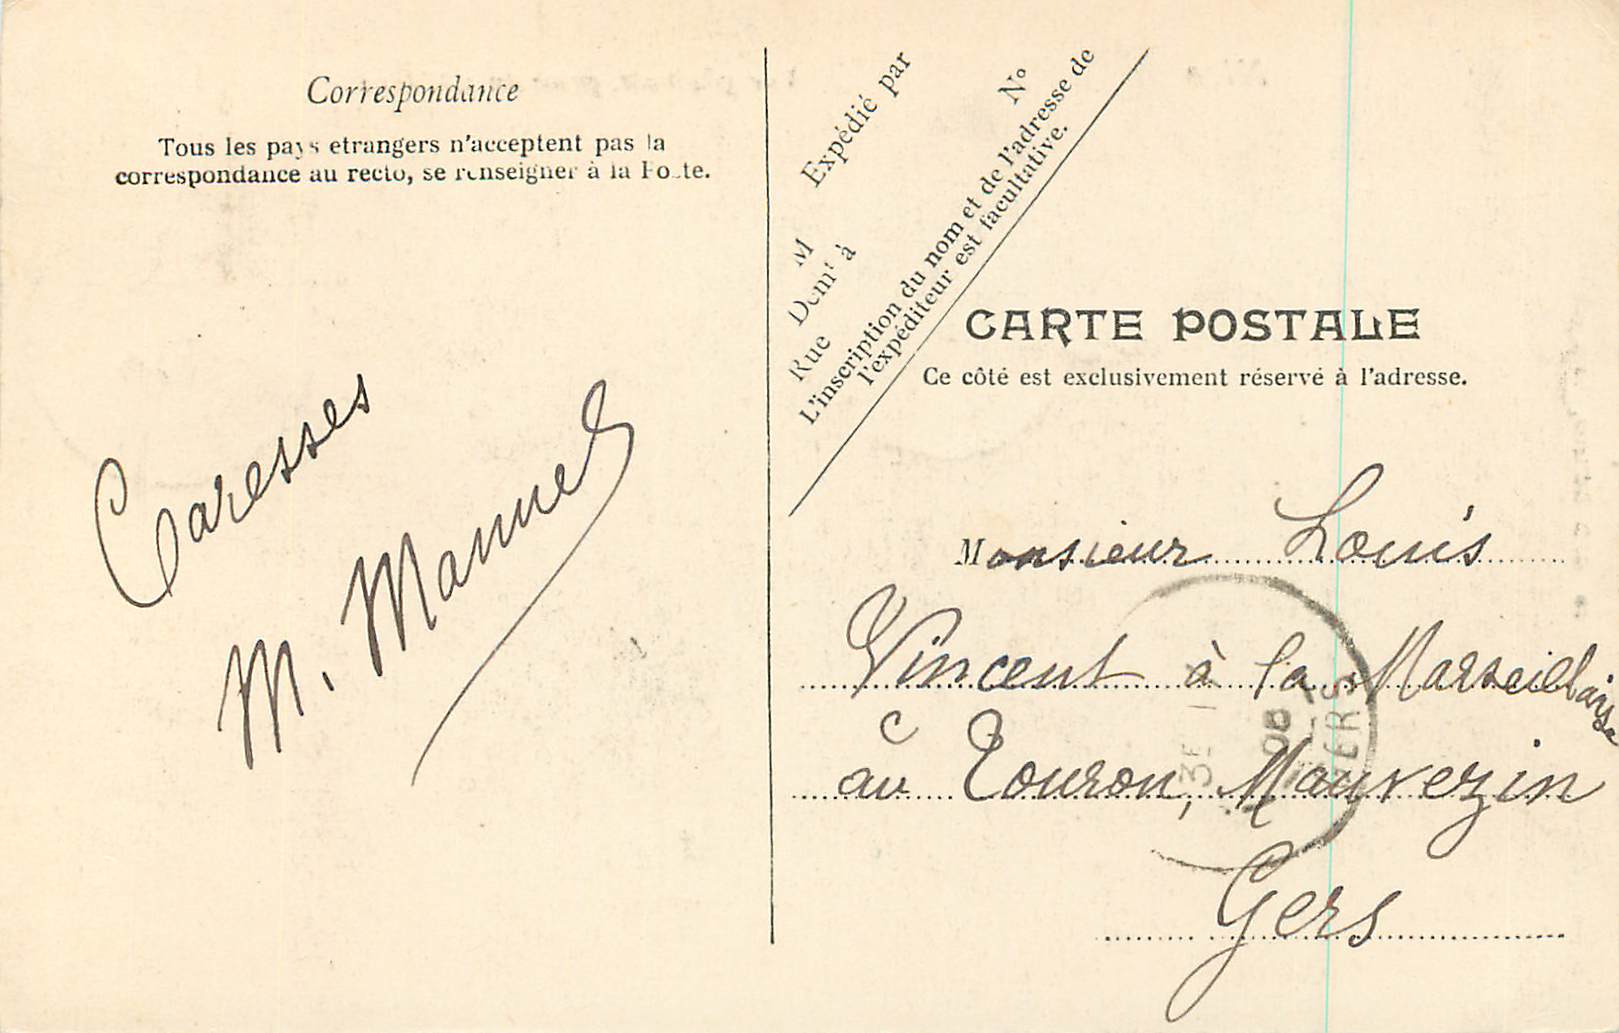 Correspondance
Tous les pays etrangers n'acceptent pas la
correspondance au recto, se renseigner à la Poste.
Caresses
M. Manuel
Expédié par
M
Demt à
Rue
N°
L'inscription du nom et de l'adresse de
l'expéditeur est facultative.
CARTE POSTALE
Ce côté est exclusivement réservé à l'adresse.
Monsieur Louis
Vincent à la Marseillaise
au Touron, Mauvezin
Gers
GERS